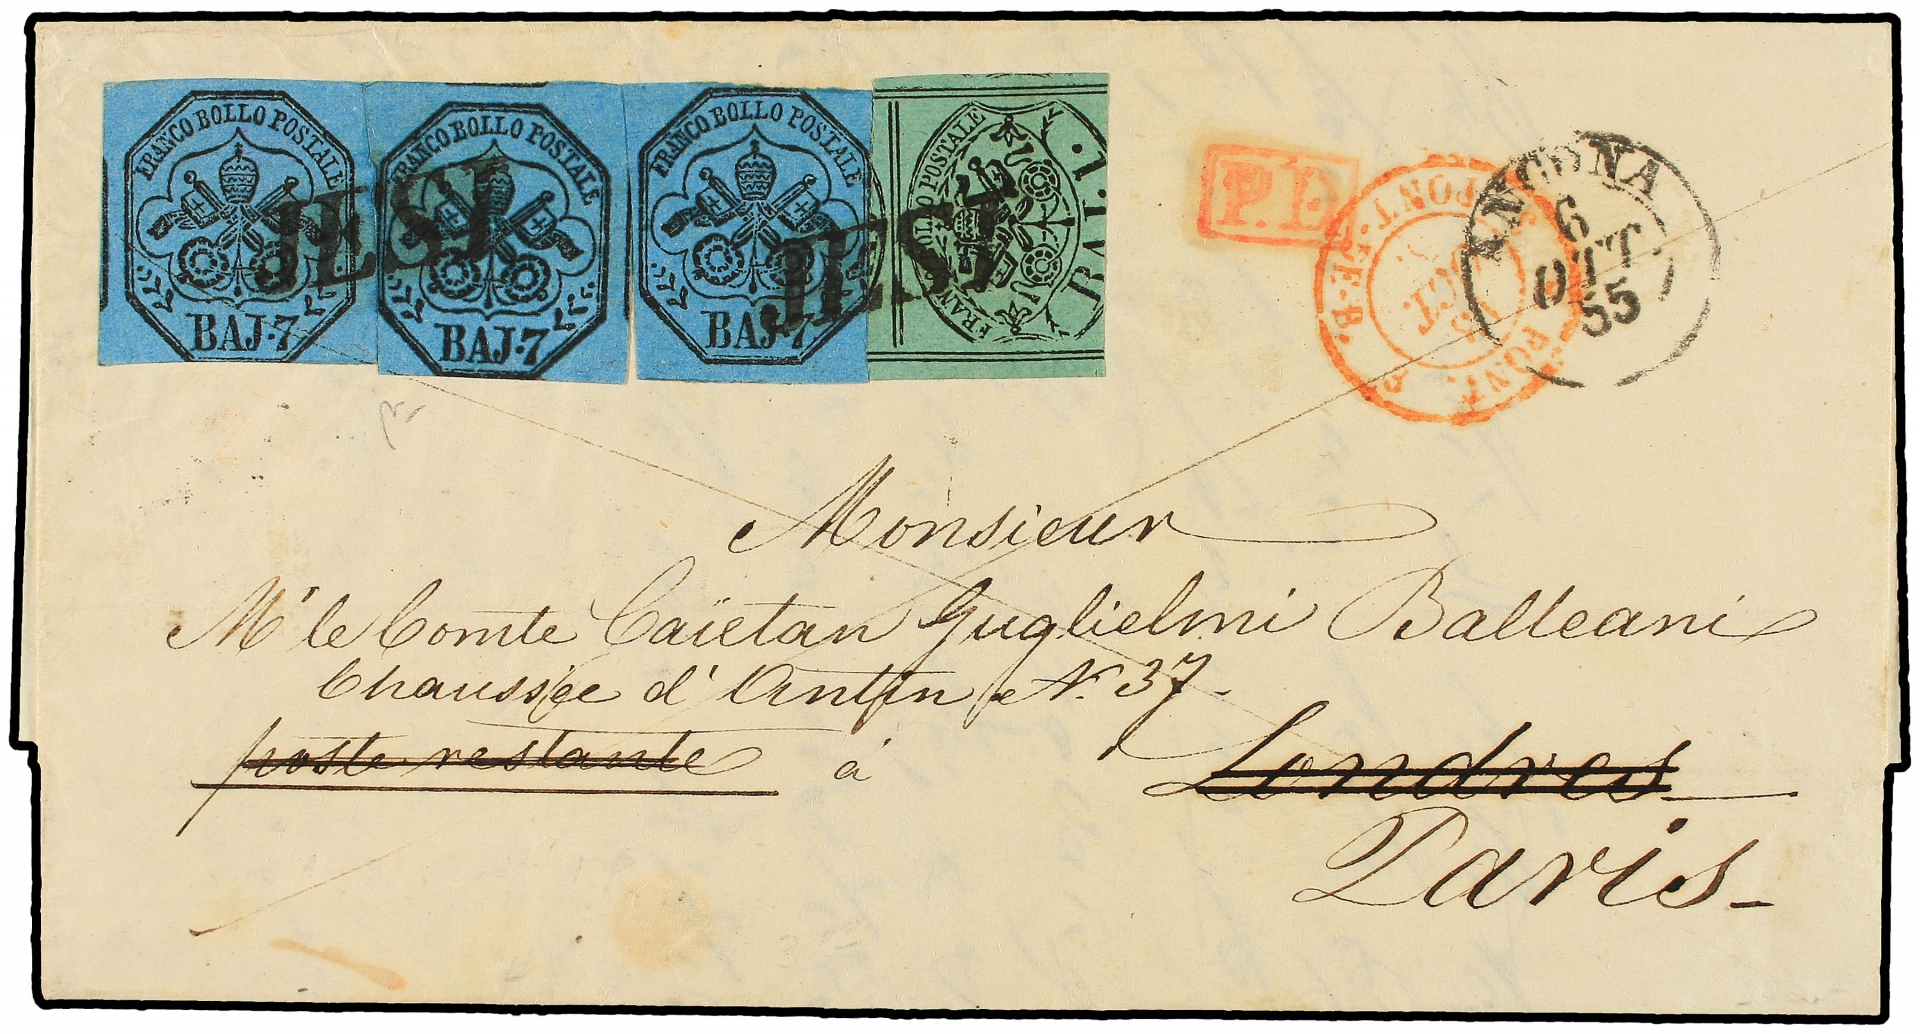 FRANCO BOLLO POSTALE
BAJ·7
FRANCO BOLLO POSTALE
BAJ·7
FRANCO BOLLO POSTALE
BAJ·7
FRANCO BOLLO POSTALE
BAJ. 1.
JESI
JESI
P.D.
ANCONA
6
OTT
55
OCT
PONT
Monsieur
Mr le Comte Caïetan Guglielmi Balleani
Chaussée d'Antin N. 37
poste restante à Londres
Paris